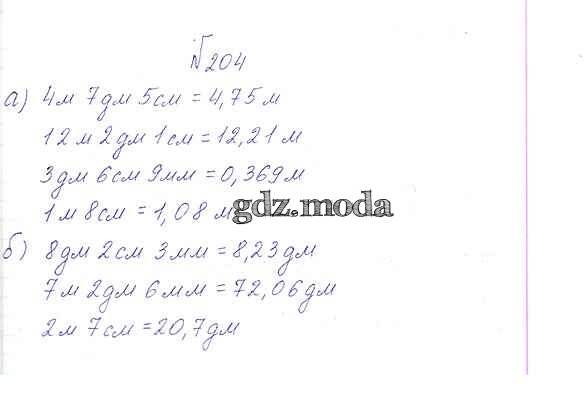 №204
а) 4м 7дм 5см = 4,75 м
12 м 2 дм 1 см = 12,21 м
3дм 6см 9мм = 0,369м
1м 8см = 1,08 м
gdz.moda
б) 8дм 2см 3мм = 8,23дм
7м 2дм 6мм = 72,06дм
2м 7см = 20,7дм